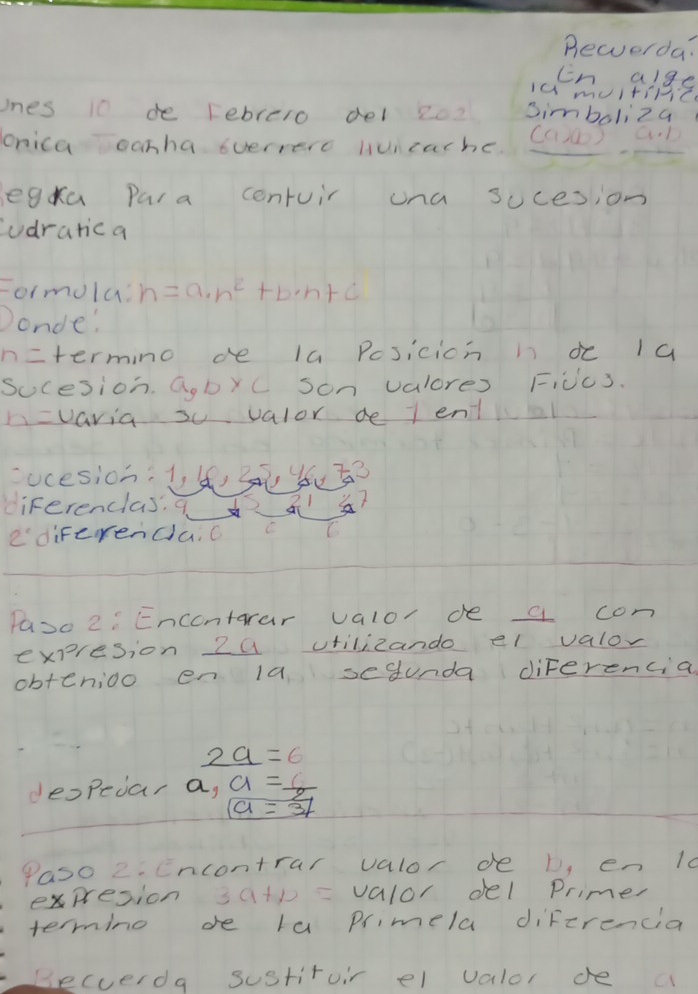 Recuerda:
En alge
la multiplic
simboliza
(a)(b) a.b
unes 10 de Febrero del 202
onica Guerrero
egka Para contuir una sucesion
cudratica
Formula: n=a.n²+b.n+c
Donde:
n=termino de la Posición n de la
sucesión. a,b y c son valores Fijos.
n=varia su valor de 1 en 1
sucesión: 1, 10, 25, 46, 73
diferencias: 9 15 21 27
2° diferencia: 6 6 6
Paso 2: Encontarar valor de a con
expresion 2a utilizando el valor
obtenido en la segunda diferencia
2a = 6
despejar a, a = 6/2
a = 3
Paso 2: Encontrar valor de b, en la
expresion 3a+b = valor del Primer
termino de la Primela diferencia
Recuerda sustituir el valor de a